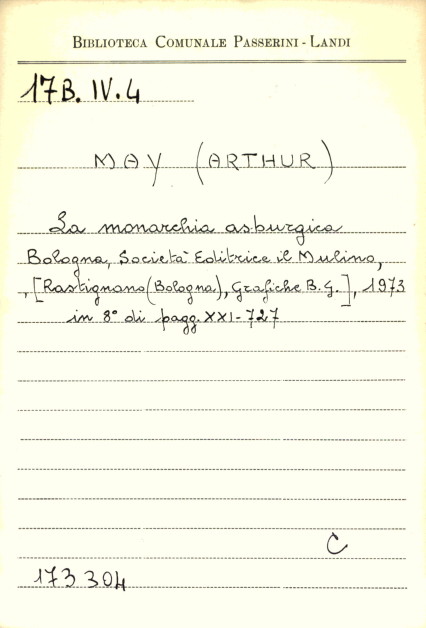 BIBLIOTECA COMUNALE PASSERINI - LANDI
17B. IV. 4
MAY (ARTHUR)
La monarchia asburgica
Bologna, Società Editrice il Mulino,
, [Rastignano (Bologna), Grafiche B.G.], 1973
in 8° di pagg. XXI-727
C
173304